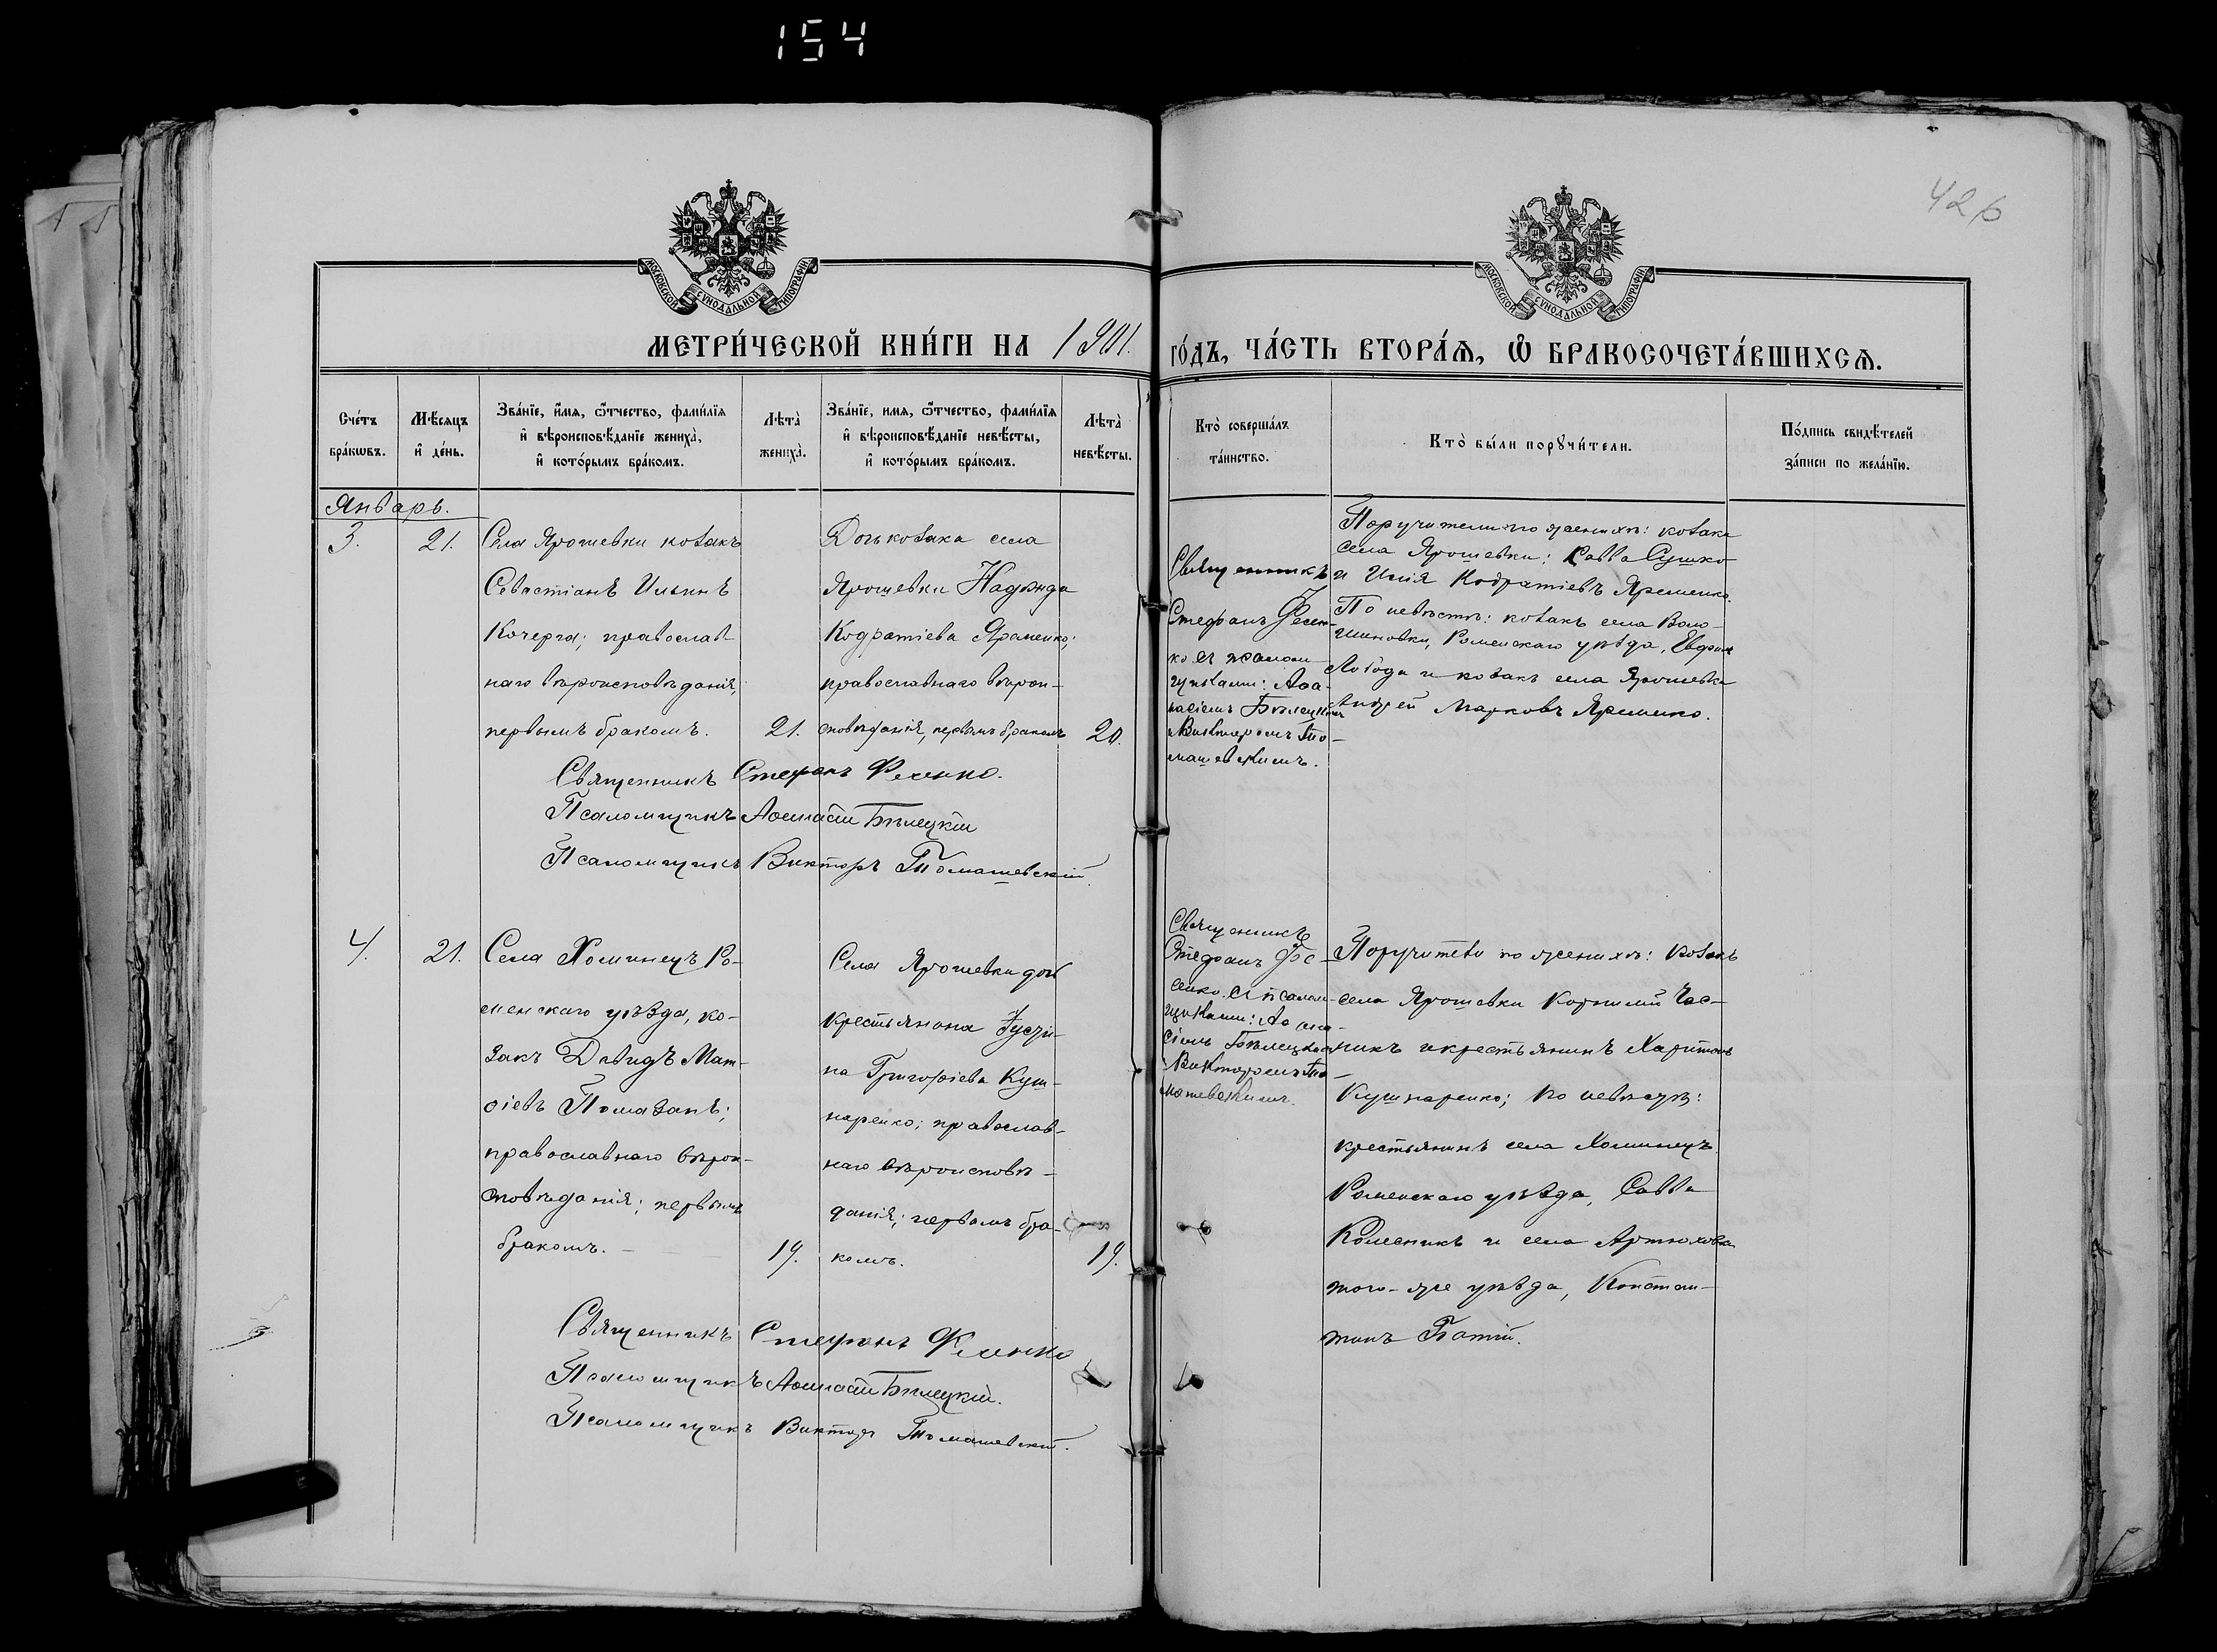 154
426
МОСКОВСКОЙ СУНОДАЛЬНОЙ ТИПОГРАФІИ
МОСКОВСКОЙ СУНОДАЛЬНОЙ ТИПОГРАФІИ
МЕТРИ́ЧЕСКОЙ КНИ́ГИ НА 1901. ГО́ДЪ, ЧА́СТЬ ВТОРА́Ѧ, Ѽ БРАКОСОЧЕТА́ВШИХСѦ.
Сче́тъ
бра́кѡвъ.
Мѣ́сяцъ
и҆ де́нь.
Зва́нїе, и҆́мѧ, ѻ҆́тчество, фами́лїѧ
и҆ вѣроисповѣ́данїе жениха̀,
и҆ кото́рымъ бра́комъ.
Лѣта̀
жениха̀.
Зва́нїе, имѧ, ѻ҆́тчество, фами́лїѧ
и҆ вѣроисповѣ́данїе невѣ́сты,
и҆ кото́рымъ бра́комъ.
Лѣта̀
невѣ́сты.
Кто̀ соверша́лъ
та́инство.
Кто̀ бы́ли порꙋчи́тели.
По́дпись свидѣ́телей
за́писи по жела́нїю.
Январь.
3.
21.
Села Ярошевки козакъ
Севастіанъ Ильинъ
Кочерга; православ
наго вѣроисповѣданія,
первымъ бракомъ.
21.
Дочь козака села
Ярошевки Надежда
Кодратіева Яременко;
православнаго вѣрои-
сповѣданія, первымъ бракомъ
20.
Священникъ
Стефанъ Фесен-
ко съ псалом-
щиками: Аѳа-
насіемъ Бѣлецкимъ
Викторомъ То-
машевскимъ.
Поручители по женихѣ: козаки
села Ярошевки: Савва Сушко
и Илія Кодратіевъ Яременко.
По невѣстѣ: козакъ села Воло-
шиновки, Роменскаго уѣзда,
Лобода и козакъ села Ярошевки
Андрей Марковъ Яременко.
Священникъ Стефанъ Фесенко.
Псаломщикъ Аѳанасій Бѣлецкій
Псаломщикъ Викторъ Томашевскій.
4.
21.
Села Хоминецъ Ро-
менскаго уѣзда, ко-
закъ Давидъ Мат-
ѳіевъ Помазанъ;
православнаго вѣрои-
сповѣданія; первымъ
бракомъ.
19.
Села Ярошевки дочь
крестьянина Іусти-
на Григоріева Куш-
наренко; православ-
наго вѣроисповѣ-
данія; первымъ бра-
комъ.
19.
Священникъ
Стефанъ Фе-
сенко съ псалом-
щиками: Аѳана-
сіемъ Бѣлецкимъ
Викторомъ То-
машевскимъ.
Поручители по женихѣ: козакъ
села Ярошевки Корнилій Час-
никъ и крестьянинъ Харитонъ
Кушнаренко; по невѣстѣ:
крестьянинъ села Хоминецъ
Роменскаго уѣзда, Савва
Колесникъ и села Артюховки
того-же уѣзда, Констан-
тинъ Батій.
Священникъ Стефанъ Фесенко
Псаломщикъ Аѳанасій Бѣлецкій.
Псаломщикъ Викторъ Томашевскій.